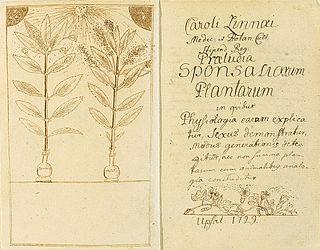 Caroli Linnæi
Medic. et Botan. Cult.
Stipend. Reg.
Præludia
Sponsaliorum
Plantarum
in quibus
Physiologia earum explica-
tur, Sexus demonstratur,
modus generationis dete-
gitur, nec non summa plan-
tarum cum animalibus analo-
gia concluditur
Upsal. 1729.